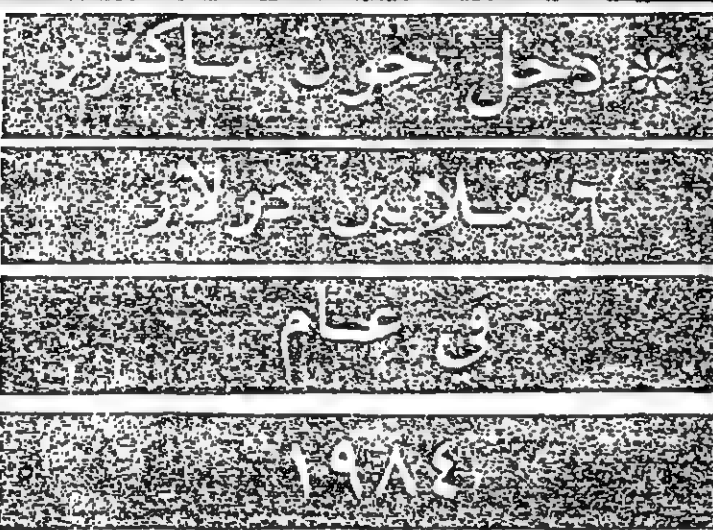 * دخل جون ماكنرو
٦ ملايين دولار
في عام
١٩٨٤